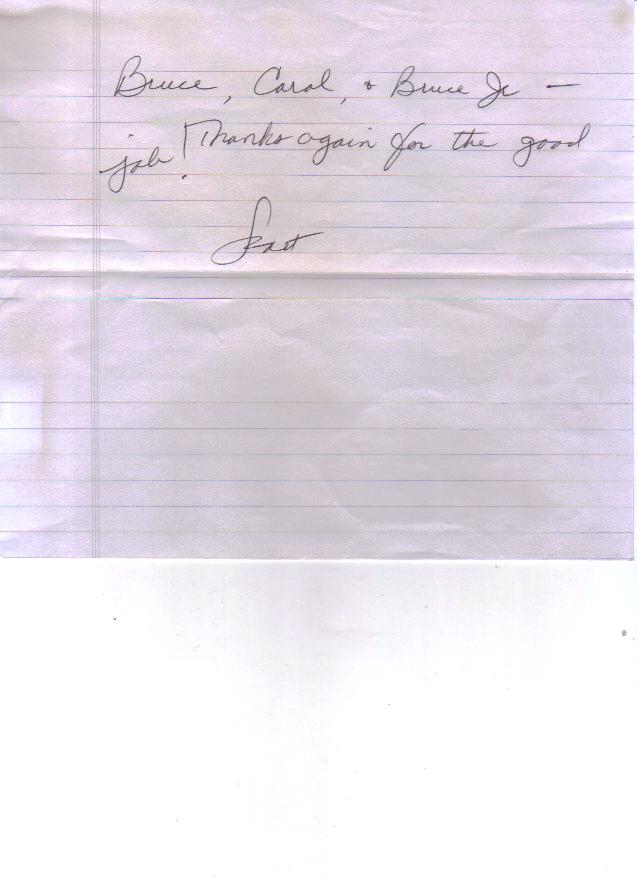 Bruce, Carol, & Bruce Jr —
Thanks again for the good
job!